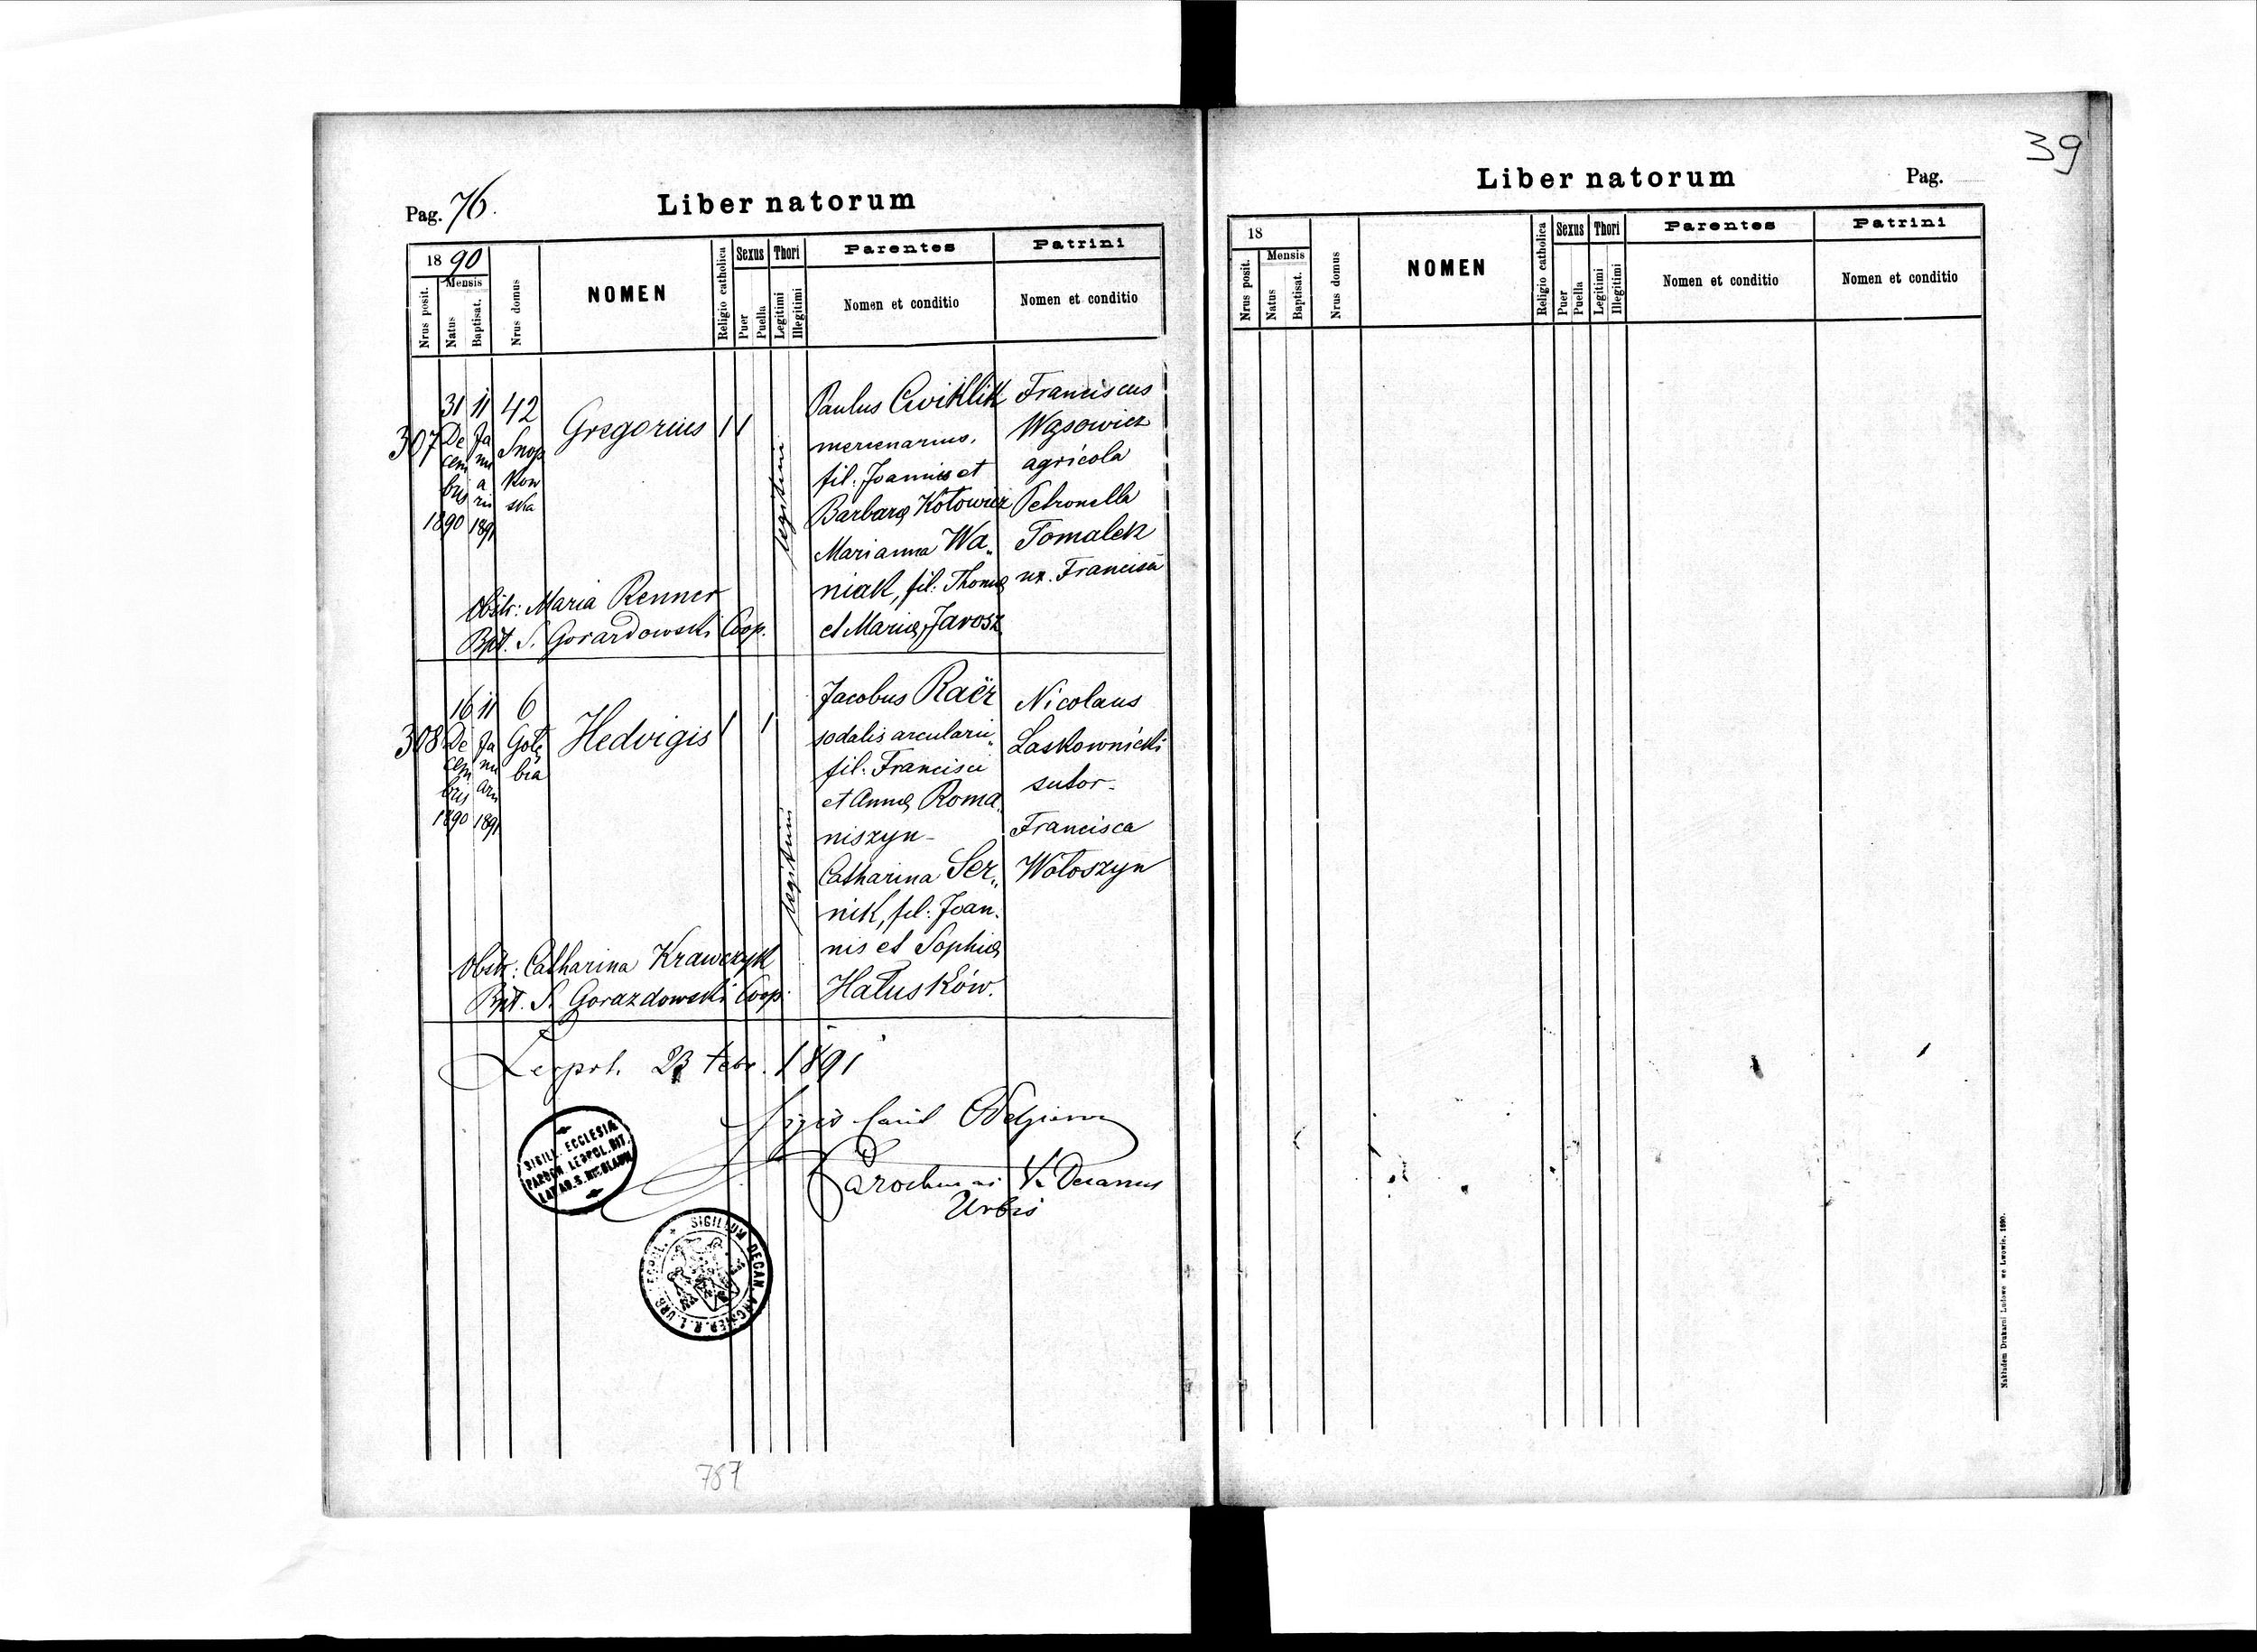 Pag. 76.
Liber natorum
1890
Mensis
Nrus posit.
Natus
Baptisat.
Nrus domus
NOMEN
Religio catholica
Sexus
Puer
Puella
Thori
Legitimi
Illegitimi
Parentes
Nomen et conditio
Patrini
Nomen et conditio
307
31
De
cem
bris
1890
11
Ja
nu
a
rii
1891
42
Snop
kow
ska
Gregorius
1 1
legitimi
Paulus Cwiklik
mercenarius,
fil: Joannis et
Barbaræ Kotowicz
Marianna Wa„
niak, fil: Thomæ
et Mariæ Jarosz
Franciscus
Wąsowicz
agricola
Petronella
Tomalek
ux. Francisci
Obstr: Maria Renner
Bpt. S. Gorazdowski Coop.
308
16
De
cem
bris
1890
11
Ja
nu
arii
1891
6
Gołę
bia
Hedvigis
1 1
legitimi
Jacobus
sodalis arcularii„
fil: Francisci
et Annæ Roma„
niszyn
Catharina Ser„
nik, fil: Joan„
nis et Sophiæ
Hałusków.
Nicolaus
Laskownicki
sutor
Francisca
Wołoszyn
Obstr: Catharina Krawczyk
Bpt. S. Gorazdowski Coop.
Leopol. 23 Febr. 1891
Parochus ac V. Decanus
Urbis
SIGILL. ECCLESIÆ
PAROCH. LEOPOL. RIT.
LAT. AD. S. NICOLAUM
SIGILLUM DECAN.
787
39
Liber natorum
Pag.
18
Mensis
Nrus posit.
Natus
Baptisat.
Nrus domus
NOMEN
Religio catholica
Sexus
Puer
Puella
Thori
Legitimi
Illegitimi
Parentes
Nomen et conditio
Patrini
Nomen et conditio
Nakładem Drukarni Ludowej we Lwowie. 1890.